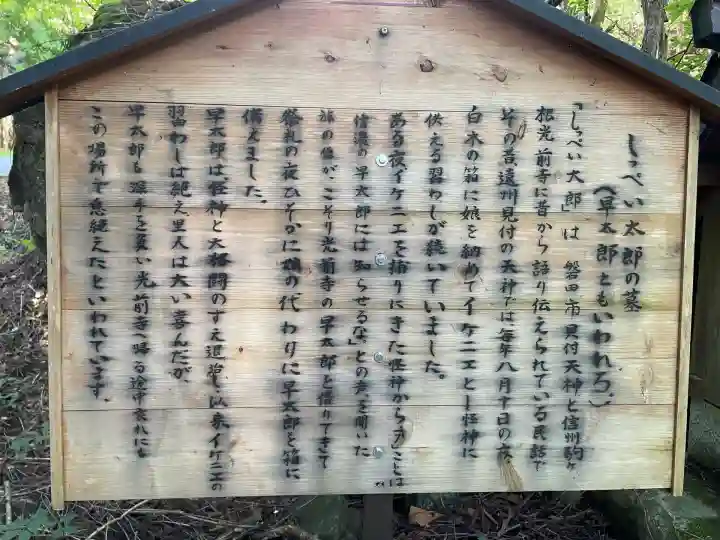 しっぺい太郎の墓
(早太郎ともいわれる)
「しっぺい太郎」は 磐田市見付天神と信州駒ヶ
根光前寺に昔から語り伝えられている民話で
その昔遠州見付の天神では毎年八月十日の夜
白木の箱に娘を納めてイケニエとし怪神に
供える習わしが続いていました。
ある夜イケニエを捕りにきた怪神から「この」ことは
信濃の早太郎には知らせるな」との声を聞いた
旅の僧が、こそり光前寺の早太郎を借りてきて
祭礼の夜ひそかに娘の代わりに早太郎を箱に
備えました。
早太郎は、怪神と大格闘のすえ退治し、以来イケニエの
習わしは絶え里人は大い喜んだが、
早太郎も深手を負い光前寺へ帰る途中哀れにも
この場所で息絶えたといわれています。